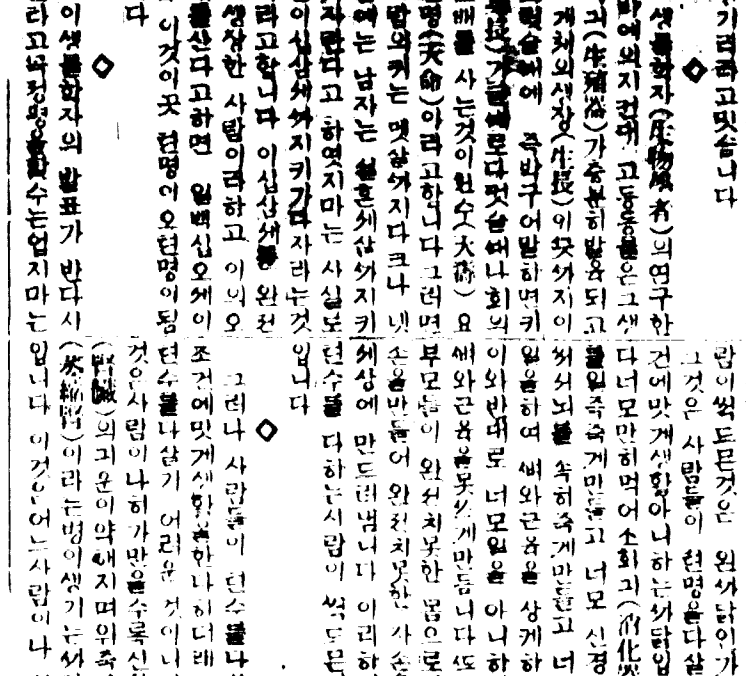 기리라고밋습니다
◇
생물학자(生物學者)의연구한
바에의지컨대 고등동물은그생
긔(生殖器)가충분히발육되고
개체의생장(生長)이끗까지이
럿슬때에 즉박구어말하면키
長)가클때로다멧살때나회의
배를 사는것이텬수(天壽) 요
명(天命)이라고합니다그러면
람의키는 멧살까지다크나 넷
에는 남자는 설흔세살까지키
자란다고 하엿지마는 사실노
이십삼세까지키가다자라는것
라고합니다 이십삼세를 완전
생장한 사람이라하고 이의오
를산다고하면 일백십오세이
이것이곳 텬명이오텬명이됨
다
◇
이생물학자의 발표가 반다시
라고 수는업지마는
람이썩드믄것은 왼까닭인가
그것은 사람들이 텬명을다살
건에맛게생활아니하는까닭입
다너모만히먹어소화긔(消化器
를일즉죽게만들고 너모 신경
써서뇌를 속히죽게만들고 너
일을하여 뼈와근육을 상케하
이와반대로 너모일을 아니하
뼈와근육을못쓰게만듬니다또
부모들이 완전치못한 몸으로
손을만들어 완전치못한 자손
세상에 만드러냄니다 이리하
텬수를 다하는사람이 썩드믄
입니다
◇
그러나 사람들이 텬수를다
조건에맛게생활을한다하더래
텬수를다살기 어려운 것이니
것은사람이나히가만을수록신
(腎臟)의긔운이약해지며위축
(萎縮腎)이라는병이생기는까
입니다 이것은어느사람이나